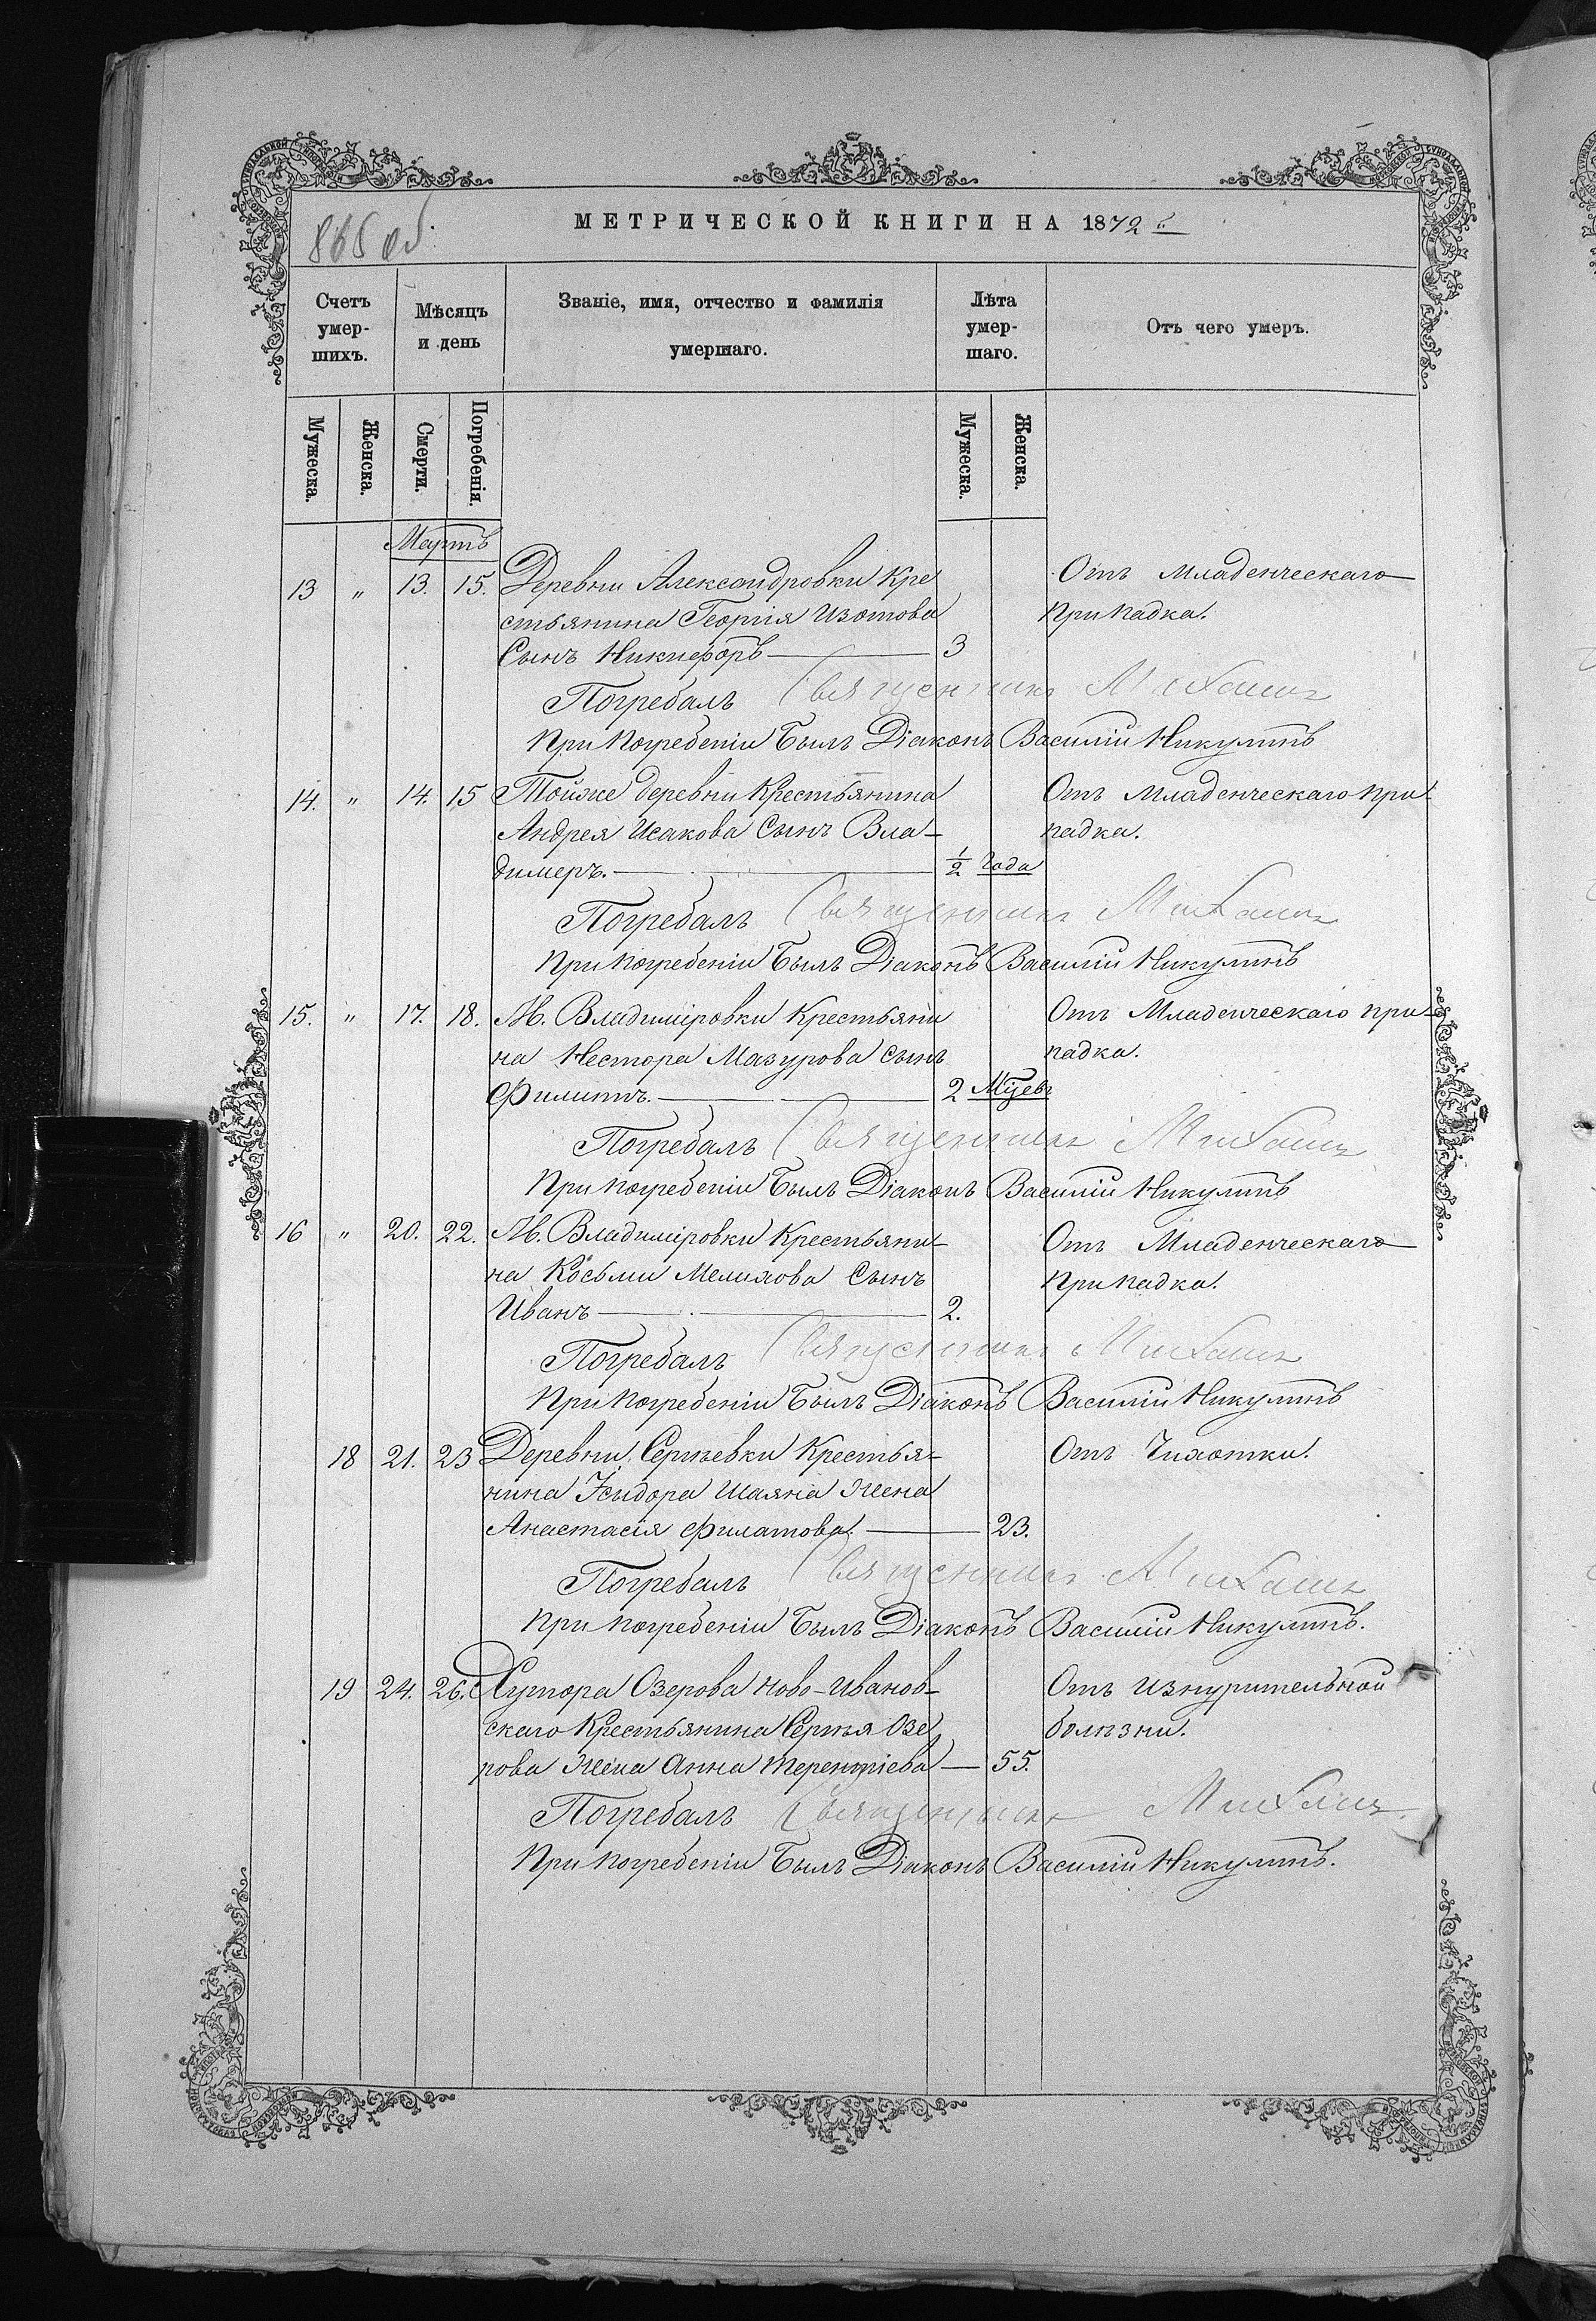 865 об.
МЕТРИЧЕСКОЙ КНИГИ НА 1872 г.
Счетъ умер-шихъ.
Мѣсяцъ и день
Званіе, имя, отчество и фамилія умершаго.
Лѣта умер-шаго.
Отъ чего умеръ.
Мужеска.
Женска.
Смерти.
Погребенія.
Мужеска.
Женска.
Мартъ
13 " 13. 15. Деревни Александровки Кре Отъ Младенческаго
стьянина Георгія Изотова припадка.
Сынъ Никифоръ — 3
Погребалъ Священникъ
При погребеніи Былъ Діаконъ Василій Никулинъ
14. " 14. 15 Тойже деревни Крестьянина Отъ Младенческаго при-
Андрея Исакова Сынъ Вла- падка.
димеръ. — 1/2 года
Погребалъ Священникъ
При погребеніи Былъ Діаконъ Василій Никулинъ
15. " 17. 18. М. Владиміровки Крестьяни Отъ Младенческаго при-
на Нестора Мазурова сынъ падка.
Филиппъ. — 2 Мѣцевъ
Погребалъ Священникъ
При погребеніи Былъ Діаконъ Василій Никулинъ
16 " 20. 22. М. Владиміровки Крестьяни- Отъ Младенческаго
на Косьми Мелихова Сынъ припадка.
Иванъ — 2.
Погребалъ Священникъ
При погребеніи Былъ Діаконъ Василій Никулинъ
18 21. 23 Деревни Сергѣевки Крестья- Отъ Чихотки.
нина Ісидора Жена
Анастасія Филатова. — 23.
Погребалъ Священникъ
При погребеніи Былъ Діаконъ Василій Никулинъ.
19 24. 26. Хутора Озерова Ново-Иванов- Отъ изнурительной
скаго Крестьянина Сергѣя Озе болѣзни.
рова Жена Анна Терентіева — 55.
Погребалъ Священникъ
При погребеніи Былъ Діаконъ Василій Никулинъ.